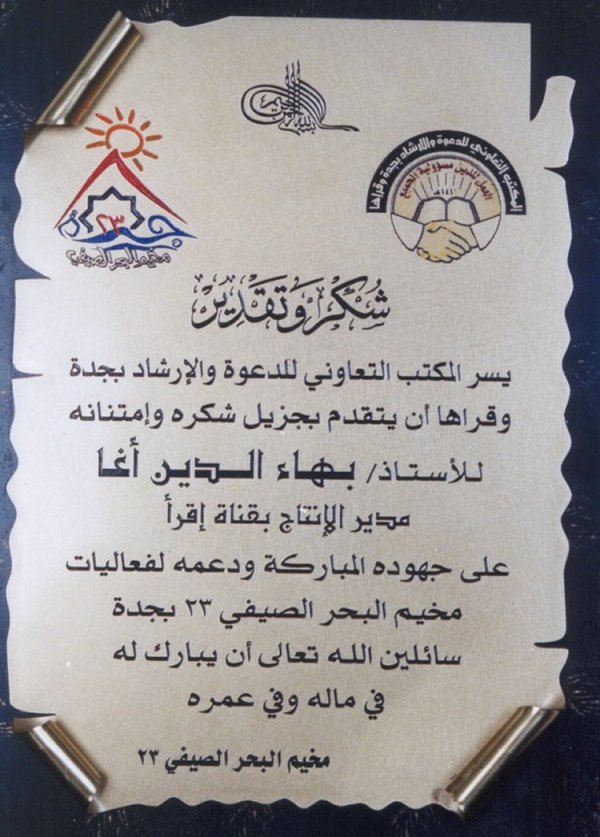 بسم الله الرحمن الرحيم
جدة
٢٣
مخيم البحر الصيفي
المكتب التعاوني للدعوة والإرشاد بجدة وقراها
العمل للدين مسؤولية الجميع
شكر وتقدير
يسر المكتب التعاوني للدعوة والإرشاد بجدة
وقراها أن يتقدم بجزيل شكره وإمتنانه
للأستاذ/ بهاء الدين أغا
مدير الإنتاج بقناة إقرأ
على جهوده المباركة ودعمه لفعاليات
مخيم البحر الصيفي ٢٣ بجدة
سائلين الله تعالى أن يبارك له
في ماله وفي عمره
مخيم البحر الصيفي ٢٣